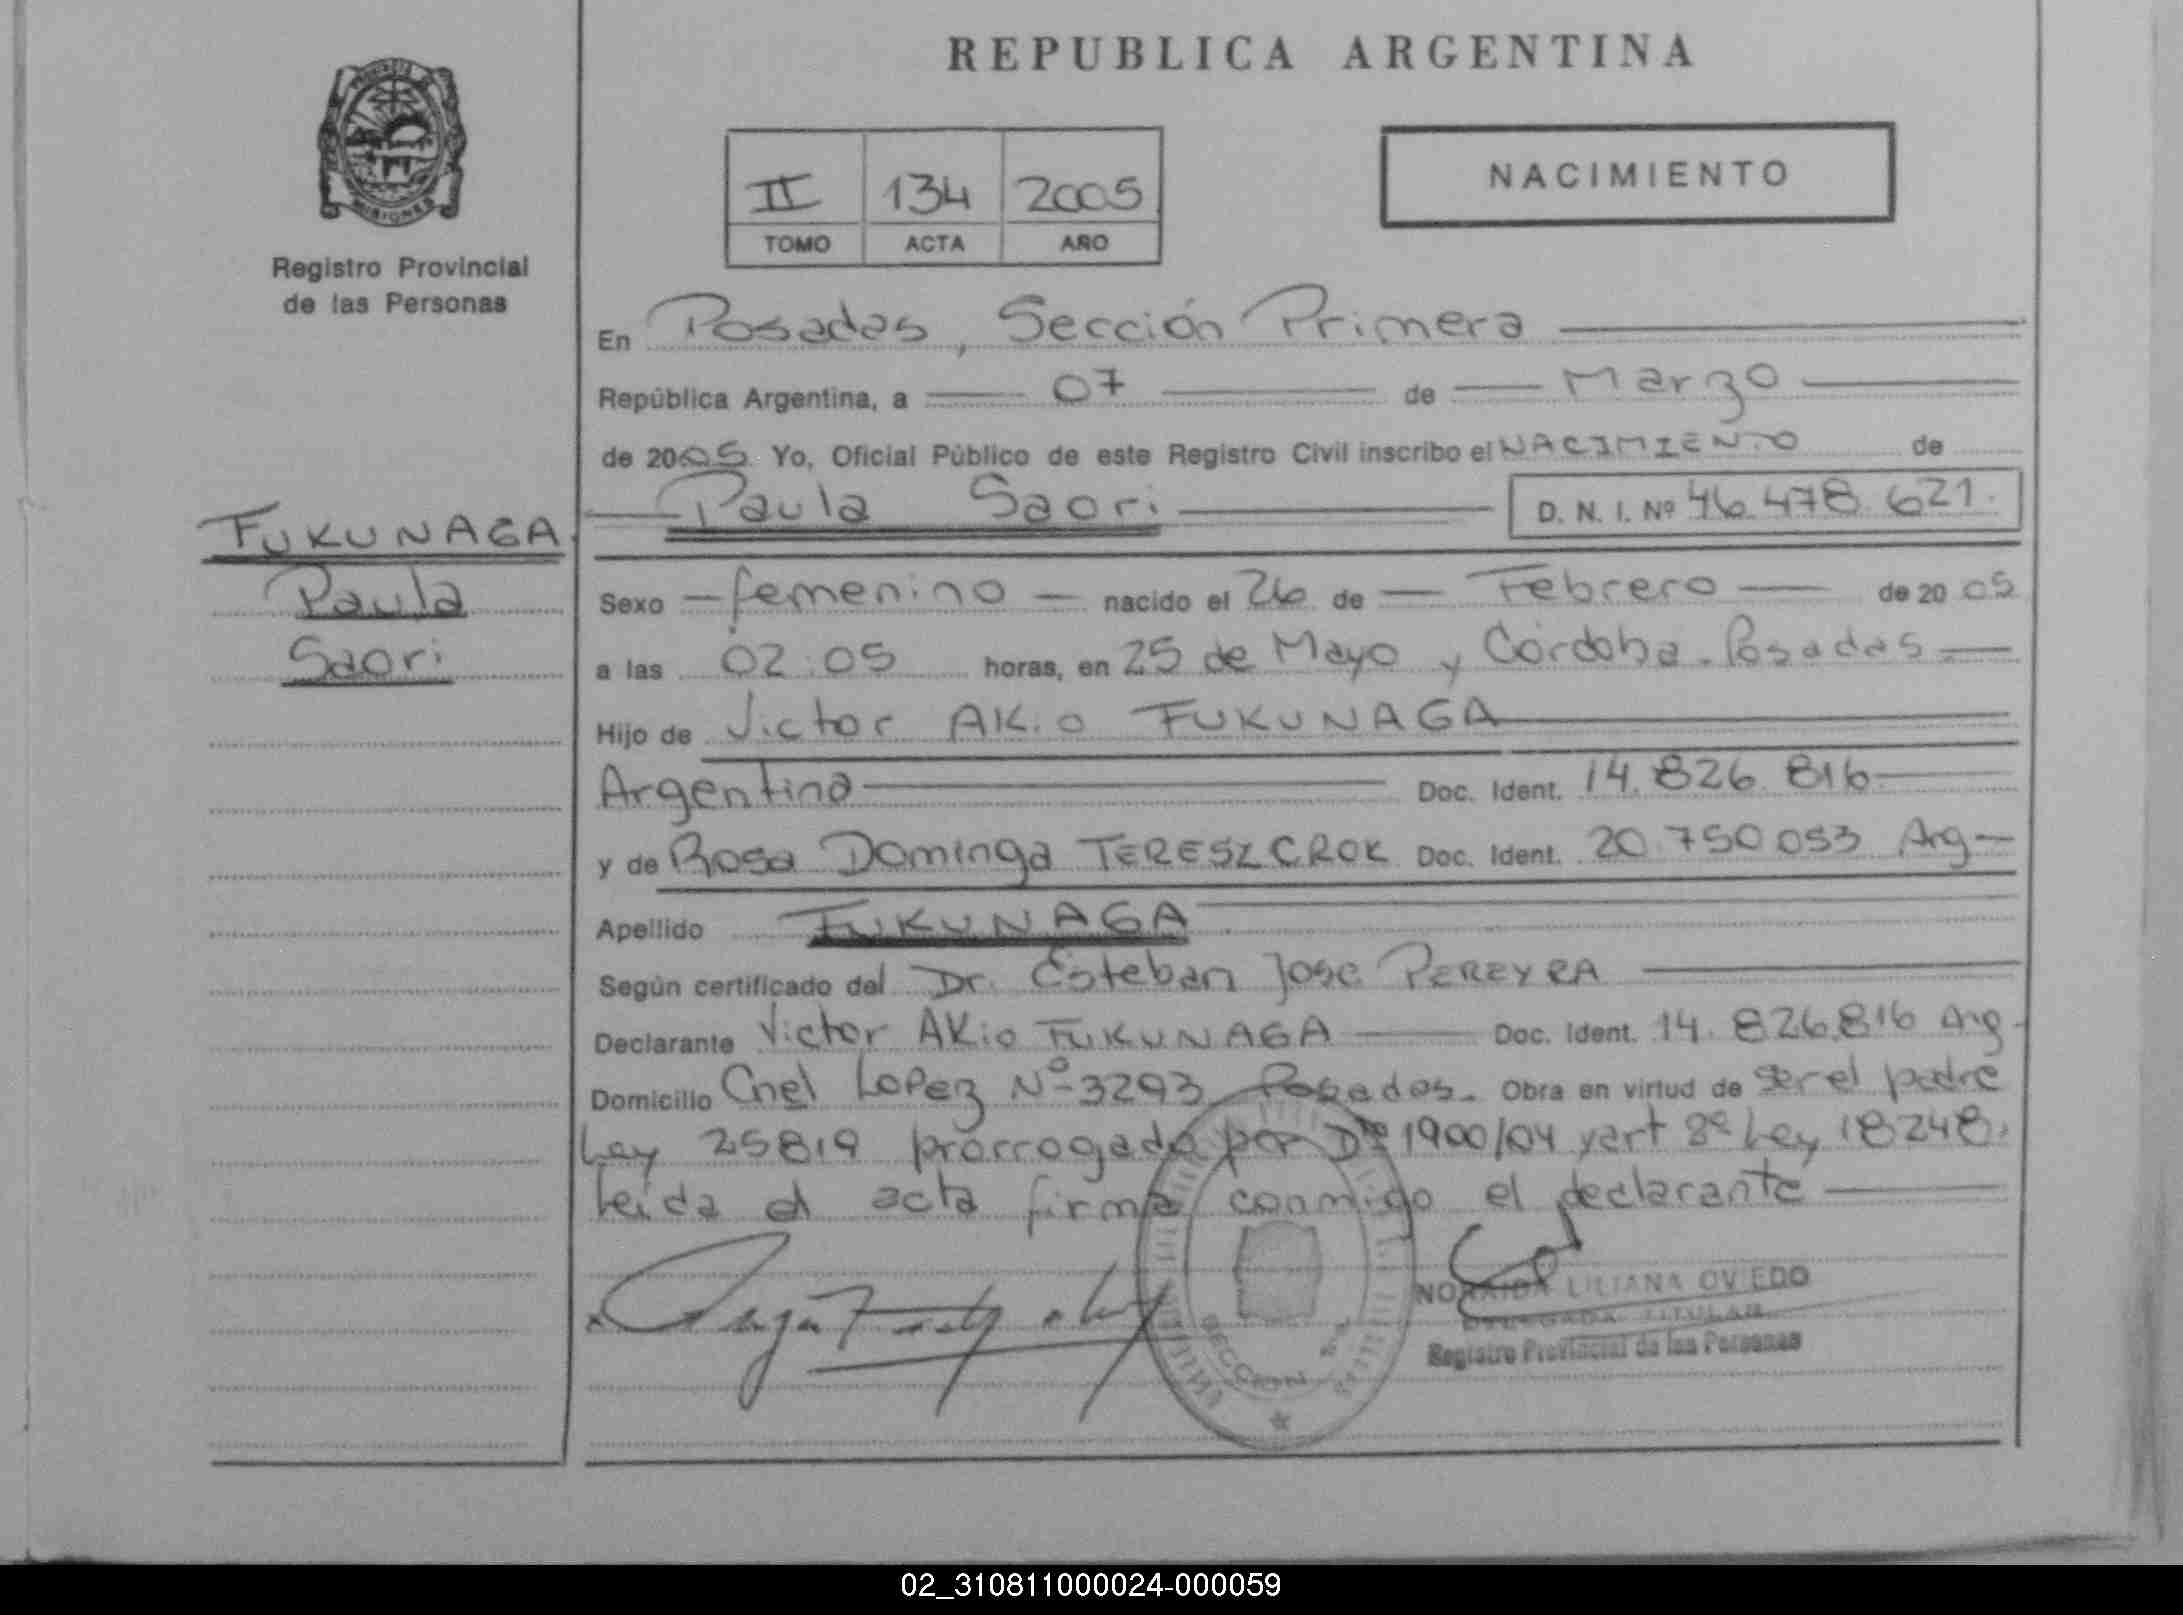 REPUBLICA ARGENTINA
PROVINCIA DE
MISIONES
Registro Provincial
de las Personas
II 134 2005
TOMO ACTA AÑO
NACIMIENTO
En Posadas, Sección Primera
República Argentina, a 07 de Marzo
de 2005 Yo, Oficial Público de este Registro Civil inscribo el NACIMIENTO de
Paula Saori D. N. I. Nº 46.478.621.
FUKUNAGA
Paula
Saori
Sexo femenino nacido el 26 de Febrero de 2005
a las 02:05 horas, en 25 de Mayo y Córdoba. Posadas.
Hijo de Victor Akio FUKUNAGA
Argentina Doc. Ident. 14.826.816
y de Rosa Dominga TERESZCROK Doc. Ident. 20.750.053 Arg
Apellido FUKUNAGA
Según certificado del Dr. Esteban Jose PEREYRA
Declarante Victor Akio FUKUNAGA Doc. Ident. 14.826.816 Arg
Domicilio Cnel Lopez Nº 3293 Posadas. Obra en virtud de ser el padre
Ley 25819 prorrogada por Dto 1900/04 y art 8º Ley 18248.
Leida el acta firma conmigo el declarante
NORAIDA LILIANA OVIEDO
DELEGADA TITULAR
Registro Provincial de las Personas
SECCION
02_310811000024-000059